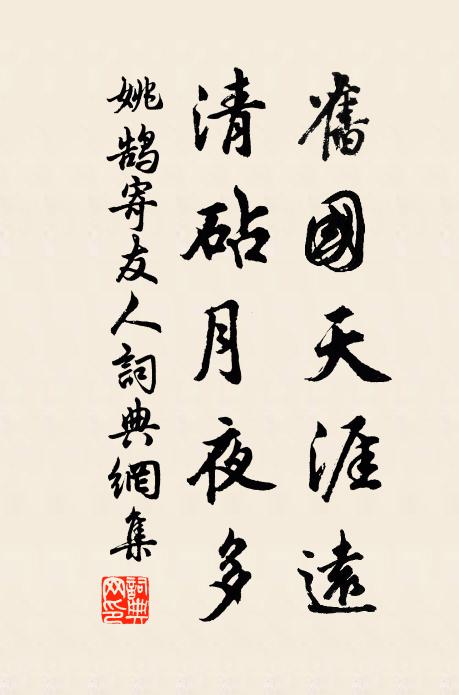 舊國天涯遠
清砧月夜多
姚鵠寄友人詞典網集
詞典網印